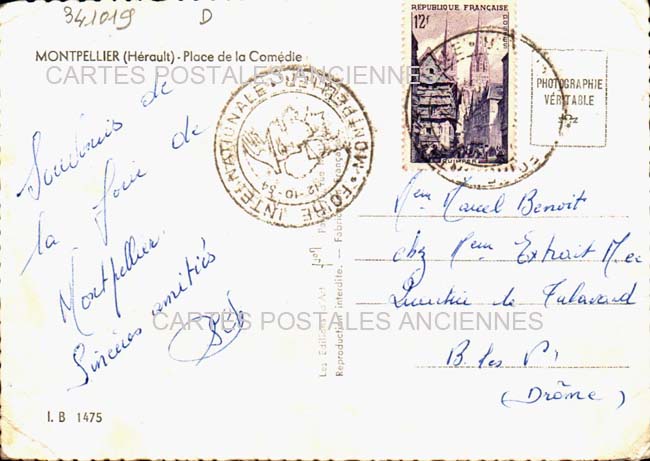 341019 D
MONTPELLIER (Hérault) - Place de la Comédie
CARTES POSTALES ANCIENNES
Souvenirs de
la Foire de
Montpellier.
Sincères amitiés
I. B 1475
FOIRE INTERNATIONALE MONTPELLIER
12-10-54
REPUBLIQUE FRANÇAISE
12f
QUIMPER
PHOTOGRAPHIE
VÉRITABLE
Les Editions
Reproduction interdite. — Fabrication Française
Marcel Benoit
chez
Quartier de
B. les
(Drôme)
CARTES POSTALES ANCIENNES